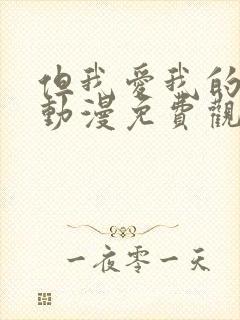 但我愛我的
動漫免費觀
一夜零一天